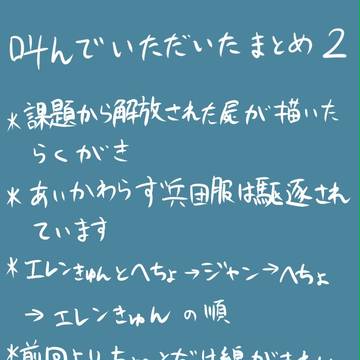 叫んでいただいたまとめ2
*課題から解放された屍が描いた
らくがき
*あいかわらず兵団服は駆逐され
ています
*エレンきゅんとへちょ→ジャン→へちょ
→エレンきゅんの順
*前回よりちょっとだけ線がきれい